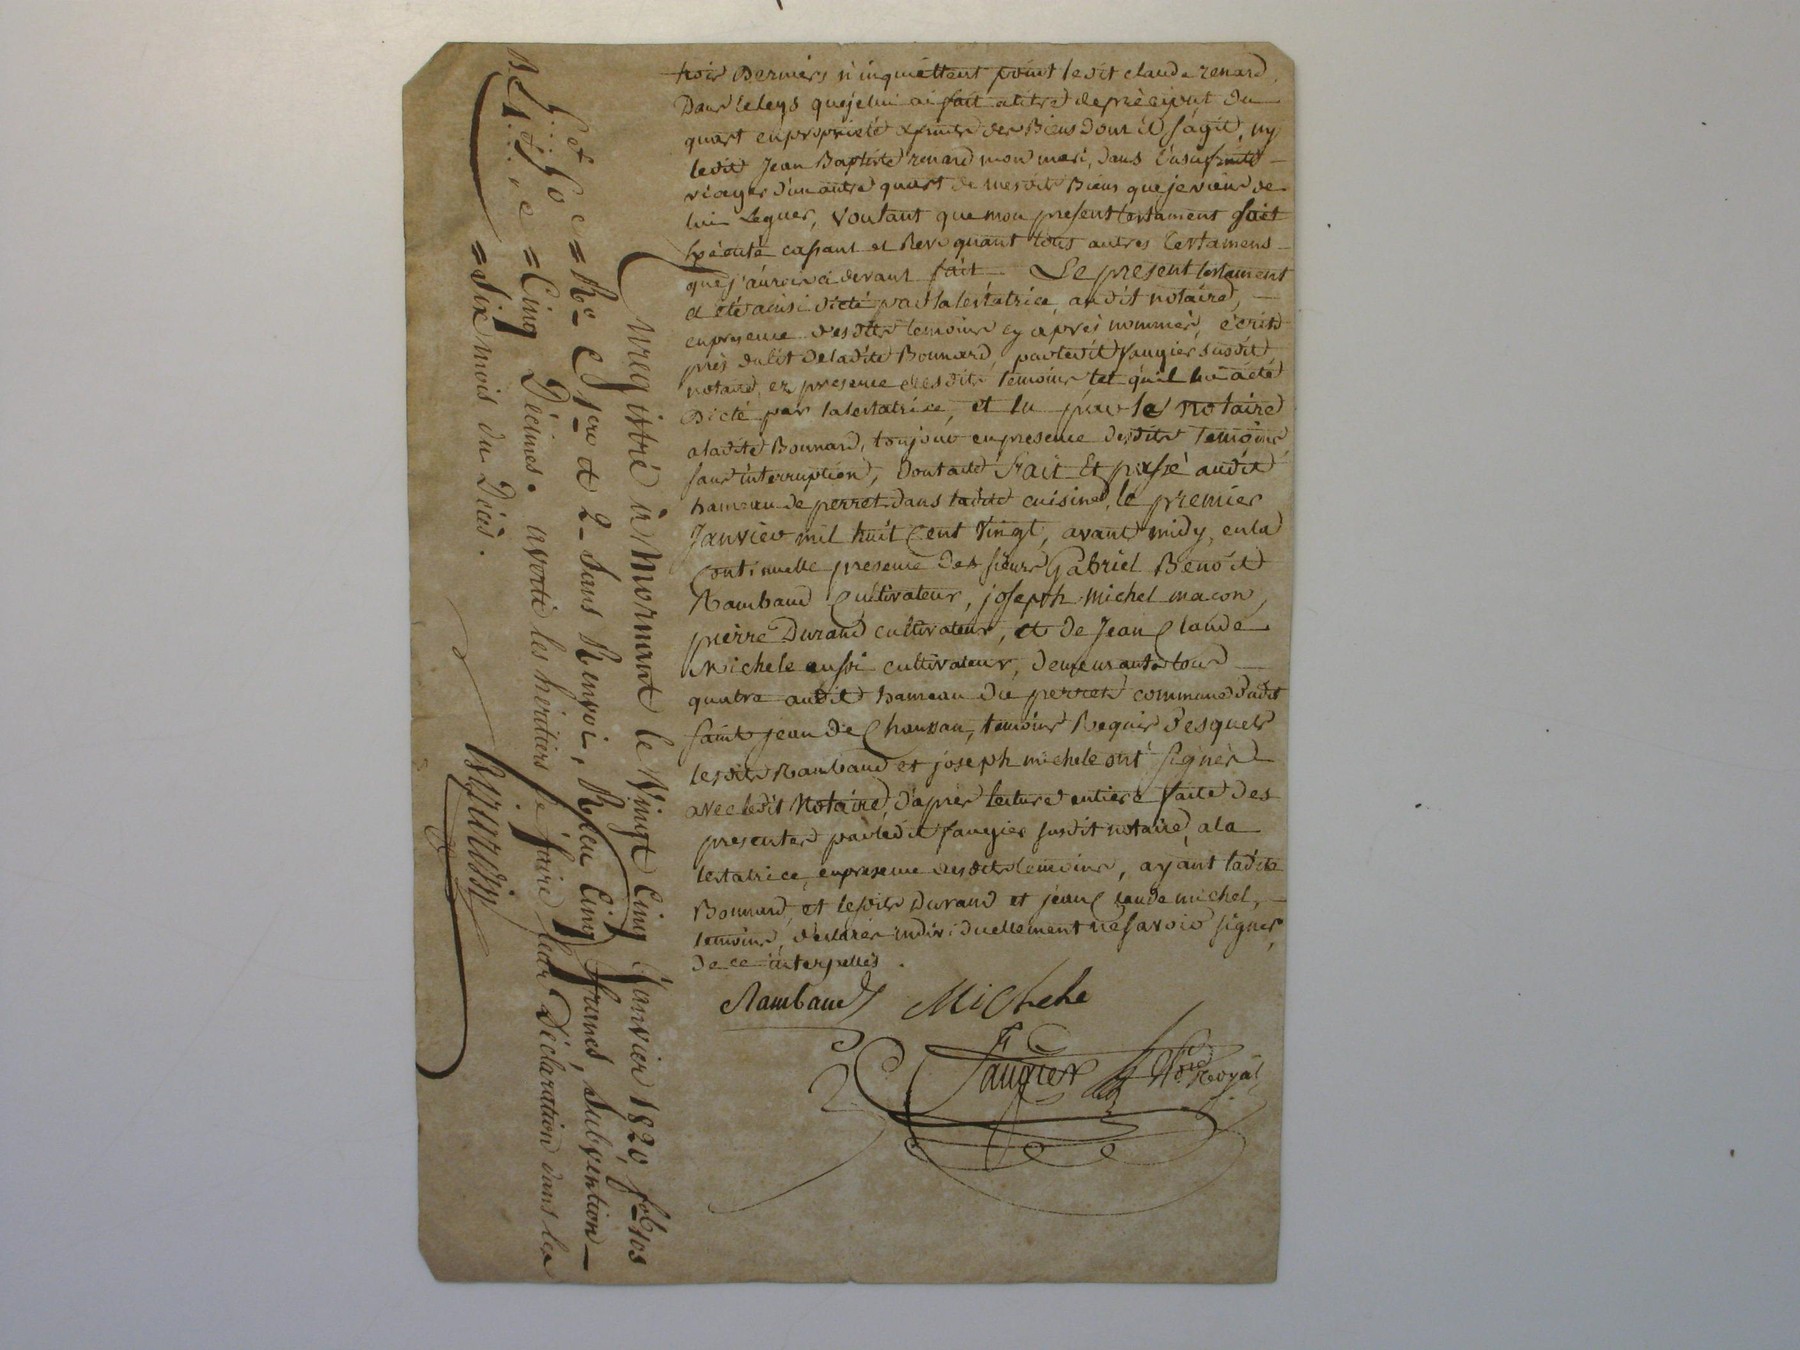 trois Derniers n'inquiettent point ledit claude renard
Dans le legs que je lui ai fait a titre de preciput du
quart en proprieté & fruits des Biens dont il s'agit, ny
ledit Jean Baptiste renard mon mari, dans l'usufruit
viager d'un autre quart de mesdits Biens que je viens de
lui Leguer, Voulant que mon present testament soit
Exécuté cassant et Revoquant tous autres testamens
que j'aurois ci devant fait Le present testament
a été ainsi dicté par la testatrice, au dit notaire,
en presence desdits temoins cy après nommés, écrit
près du lit de ladite Bonnard, par ledit faugier susdit
notaire, en presence desdits temoins tel qu'il lui a été
Dicté par la testatrice, et lu par le notaire
a ladite Bonnard, toujours en presence desdits temoins
sans interruption, Dont acte fait Et passé audit
hameau de perret dans ladite cuisine, le premier
Janvier mil huit Cent Vingt, avant midy, en la
Continuelle presence Des sieurs Gabriel Benoit
Rambaud Cultivateur, joseph michel macon,
pierre Durand cultivateur, et de Jean Claude
Michele aussi cultivateur, demeurants tous
quatre audit hameau du perret commune dudit
saint jean de Chaussan, temoins Requis desquels
lesdits Rambaud et joseph michele ont signés
avec ledit Notaire, d'après lecture entiere faite des
presentes par ledit faugier susdit notaire, a la
testatrice, en presence desdits temoins, ayant ladite
Bonnard, et lesdits Durand et jean Claude michel,
temoins, declarés individuellement ne savoir signer,
de ce interpellés.
Rambaud Michele
faugier Nore Royal
Enregistré à Mornant le Vingt Cinq Janvier 1820, fo 108
Ro C 1ere et 2 Sans Renvoi, Reçu Cinq francs, Subvention
Cinq Décimes. averti les héritiers de faire leur Déclaration dans les
Six mois du Décès.